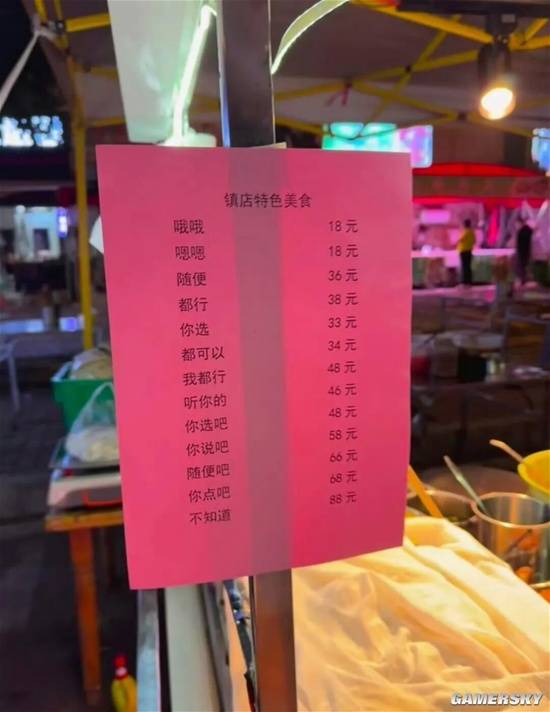 镇店特色美食
哦哦 18元
嗯嗯 18元
随便 36元
都行 38元
你选 33元
都可以 34元
我都行 48元
听你的 46元
你选吧 48元
你说吧 58元
随便吧 66元
你点吧 68元
不知道 88元
GAMERSKY